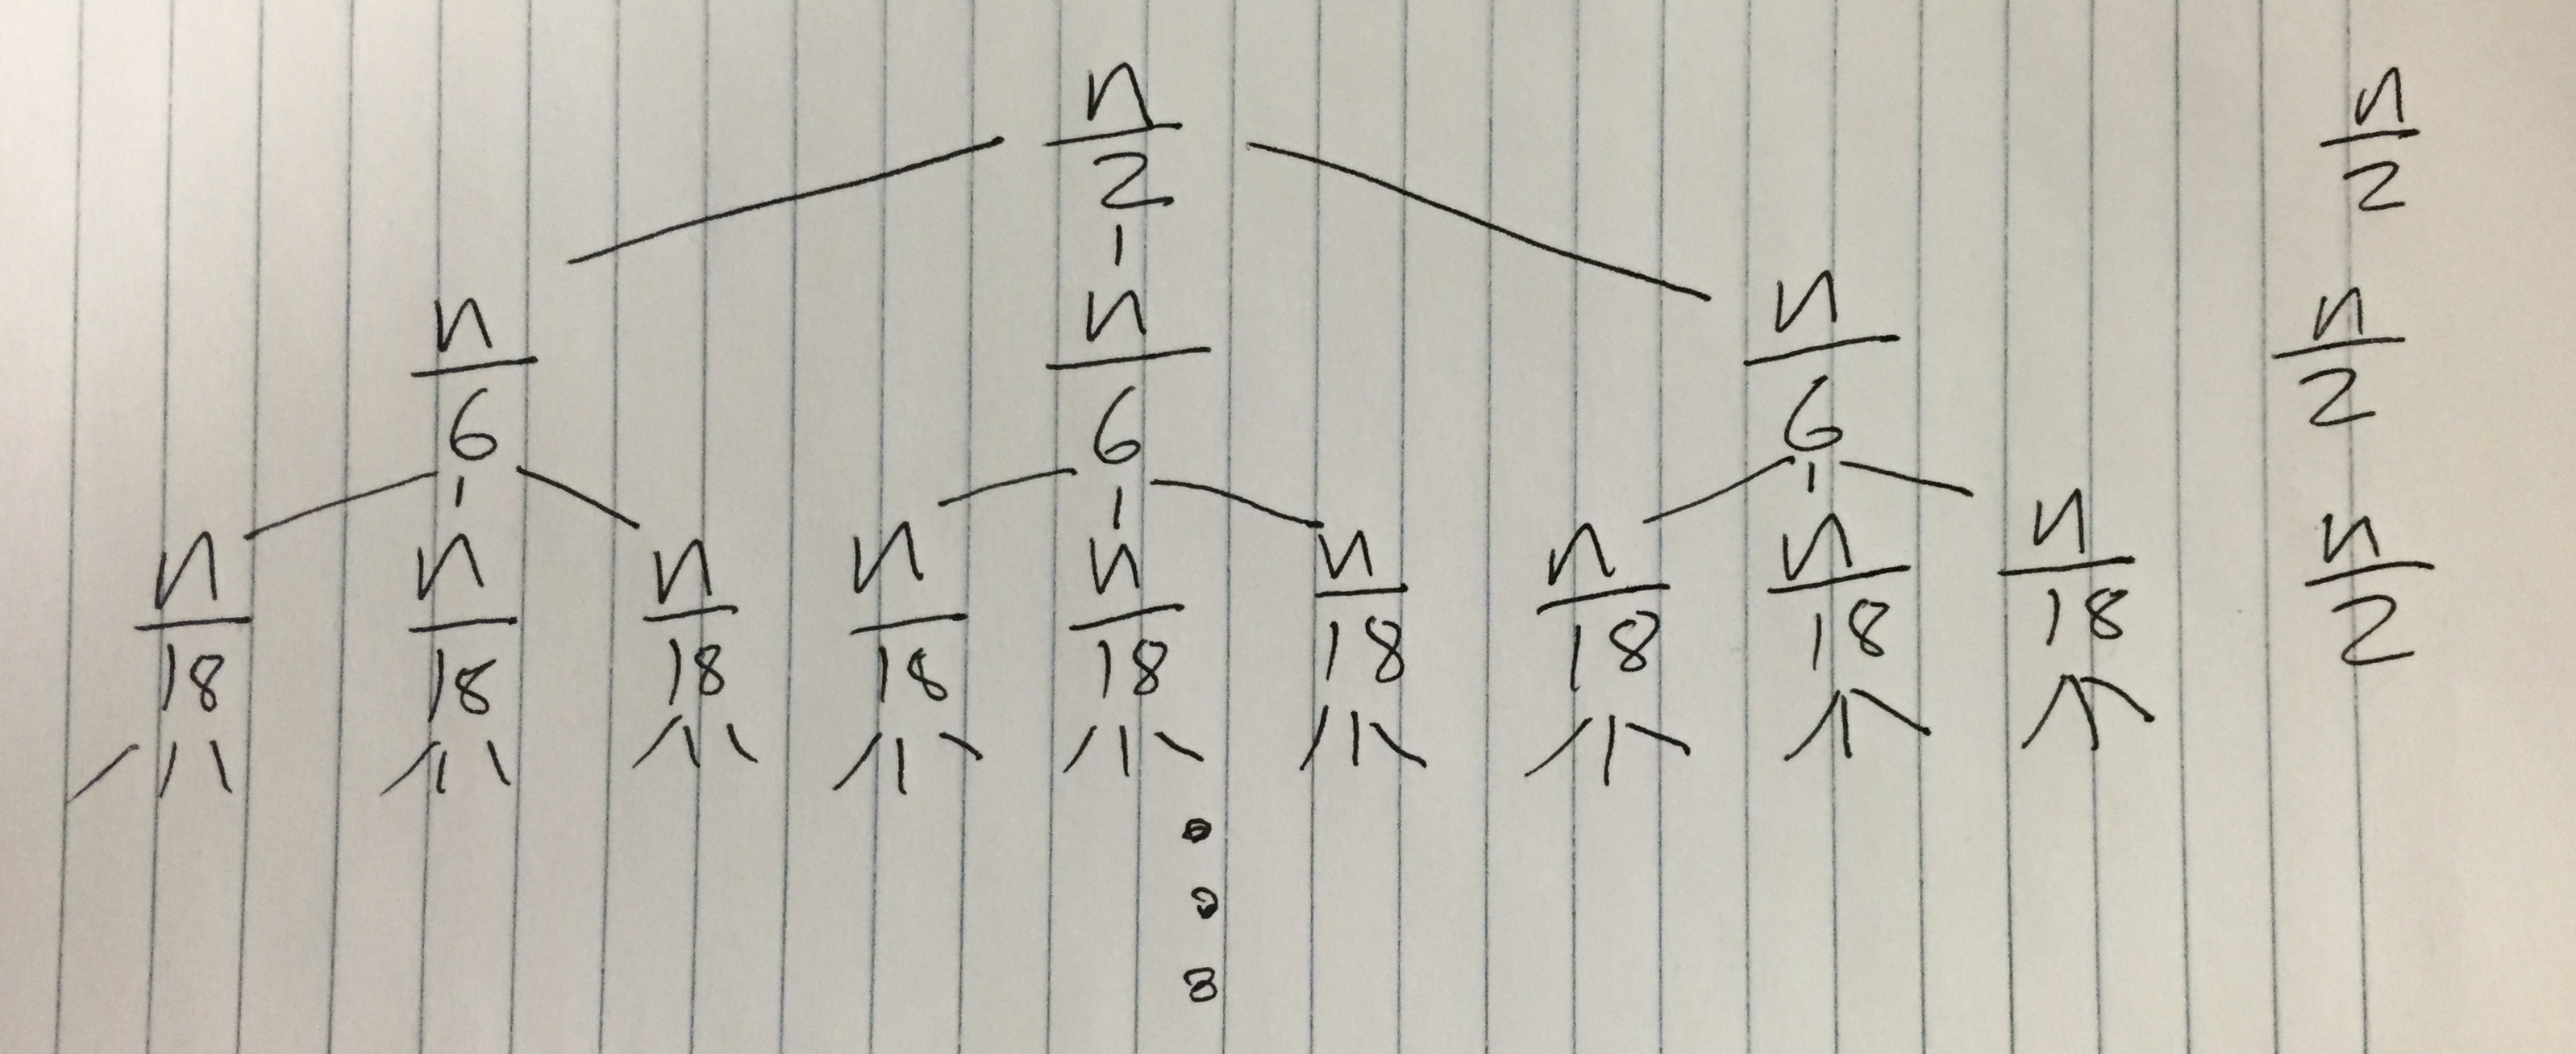 n/2 n/2
n/6 n/6 n/6 n/2
n/18 n/18 n/18 n/18 n/18 n/18 n/18 n/18 n/18 n/2